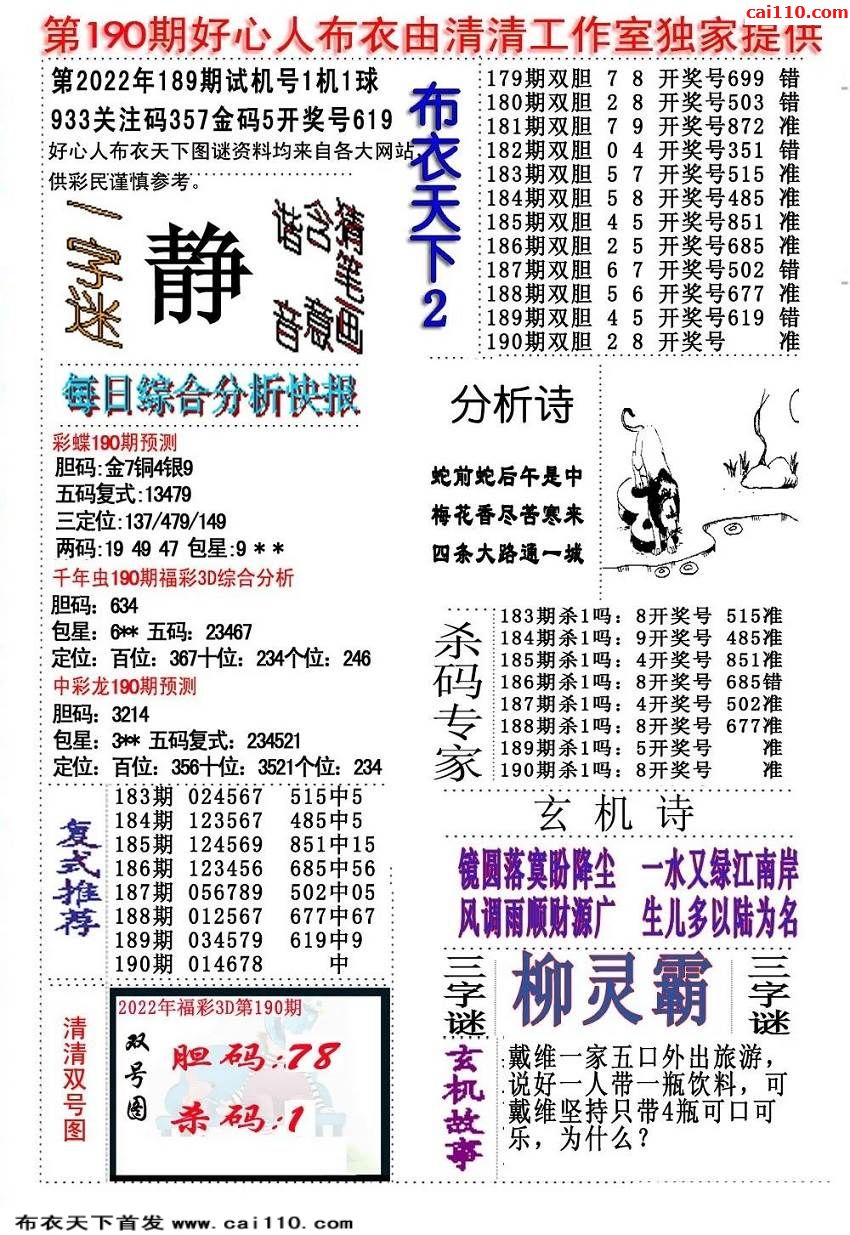 cai110.com
第190期好心人布衣由清清工作室独家提供
第2022年189期试机号1机1球
933关注码357金码5开奖号619
好心人布衣天下图谜资料均来自各大网站,
供彩民谨慎参考。
一字迷
静
猜笔画
含意
谐音
布衣天下2
179期双胆 7 8 开奖号699 错
180期双胆 2 8 开奖号503 错
181期双胆 7 9 开奖号872 准
182期双胆 0 4 开奖号351 错
183期双胆 5 7 开奖号515 准
184期双胆 5 8 开奖号485 准
185期双胆 4 5 开奖号851 准
186期双胆 2 5 开奖号685 准
187期双胆 6 7 开奖号502 错
188期双胆 5 6 开奖号677 准
189期双胆 4 5 开奖号619 错
190期双胆 2 8 开奖号 准
每日综合分析快报
彩蝶190期预测
胆码:金7铜4银9
五码复式:13479
三定位:137/479/149
两码:19 49 47 包星:9 * *
千年虫190期福彩3D综合分析
胆码：634
包星：6** 五码：23467
定位：百位：367十位：234个位：246
中彩龙190期预测
胆码：3214
包星：3** 五码复式：234521
定位：百位：356十位：3521个位：234
分析诗
蛇前蛇后午是中
梅花香尽苦寒来
四条大路通一城
杀码专家
183期杀1吗：8开奖号 515准
184期杀1吗：9开奖号 485准
185期杀1吗：4开奖号 851准
186期杀1吗：8开奖号 685错
187期杀1吗：4开奖号 502准
188期杀1吗：8开奖号 677准
189期杀1吗：5开奖号 准
190期杀1吗：8开奖号 准
复式推荐
183期 024567 515中5
184期 123567 485中5
185期 124569 851中15
186期 123456 685中56
187期 056789 502中05
188期 012567 677中67
189期 034579 619中9
190期 014678 中
玄机诗
镜圆落寞盼降尘 一水又绿江南岸
风调雨顺财源广 生儿多以陆为名
三字谜
柳灵霸
三字谜
清清双号图
2022年福彩3D第190期
双号图
胆码:78
杀码:1
玄机故事
戴维一家五口外出旅游，
说好一人带一瓶饮料，可
戴维坚持只带4瓶可口可
乐，为什么？
布衣天下首发 www.cai110.com